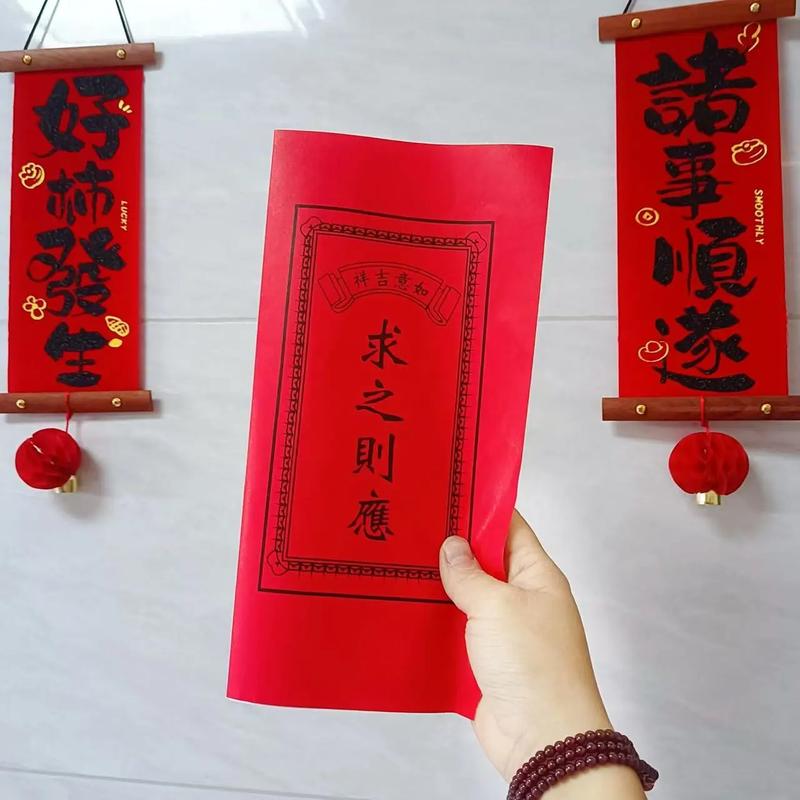 好柿發生
LUCKY
如意吉祥
求之則應
諸事順遂
SMOOTHLY